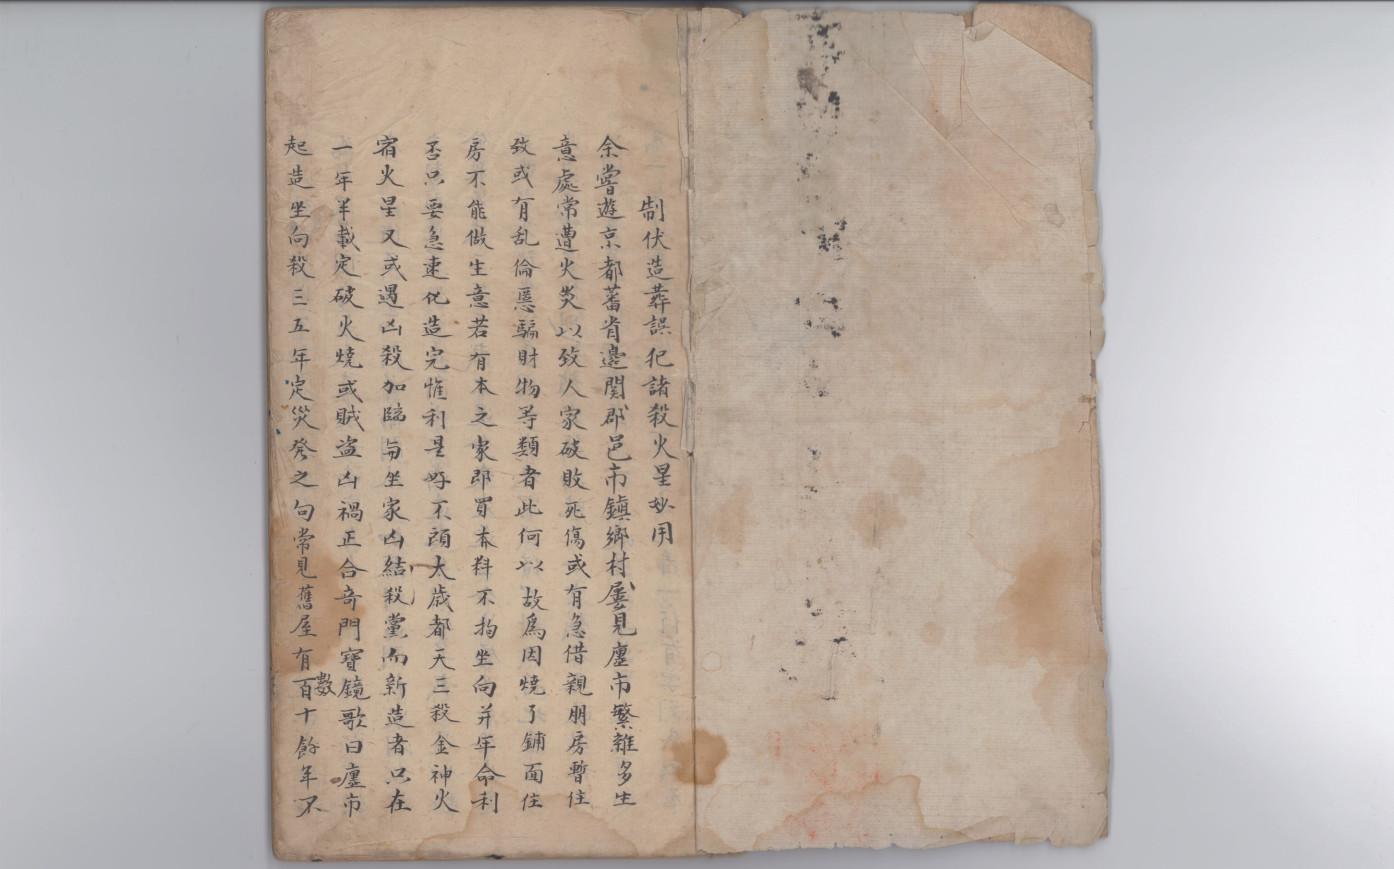 制伏造葬誤犯諸殺火星妙用
余嘗遊京都蕃省邊関郡邑市鎮鄉村屢見廛市繁雜多生
意處常遭火炎以致人家破敗死傷或有急借親朋房暫住
致或有乱倫慝騙財物等類者此何以故爲因燒了鋪面住
房不能做生意若有本之家即買木料不拘坐向并年命利
否只要急速化造完惟利是好不顧太歲都天三殺金神火
宿火星又或遇凶殺加臨与坐家凶結殺黨而新造者只在
一年半載定破火燒或賊盜凶禍正合奇門寶鏡歌曰廛市
起造坐向殺三五年定災發之句常見舊屋有百數十餘年不